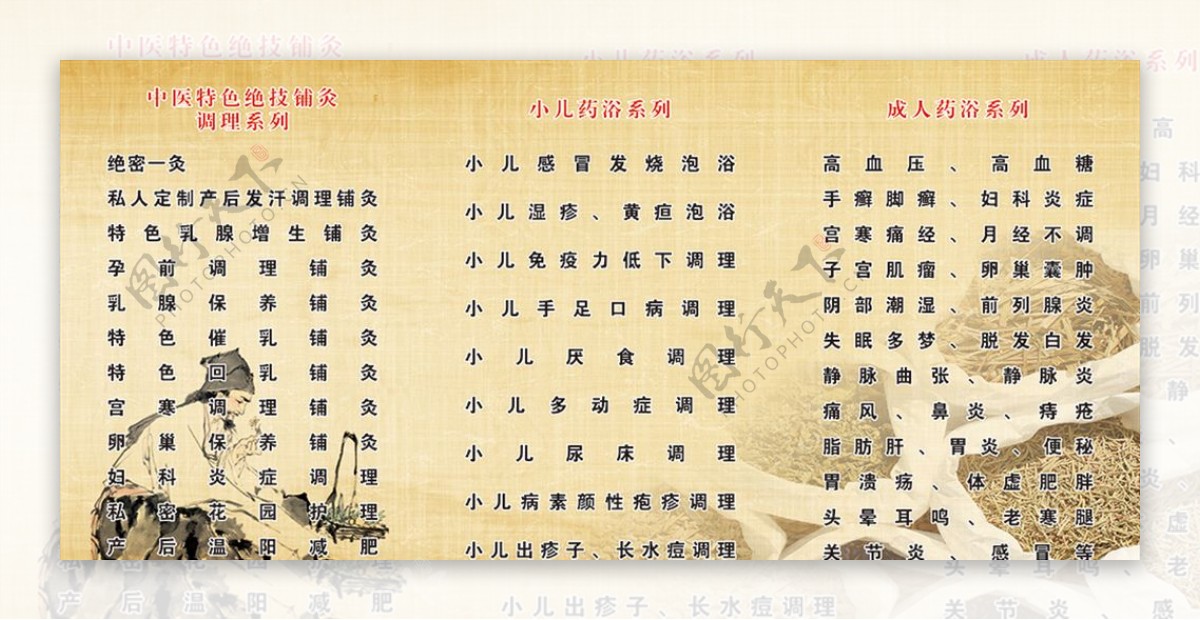 中医特色绝技铺灸
调理系列
绝密一灸
私人定制产后发汗调理铺灸
特色乳腺增生铺灸
孕前调理铺灸
乳腺保养铺灸
特色催乳铺灸
特色回乳铺灸
宫寒调理铺灸
卵巢保养铺灸
妇科炎症调理
私密花园护理
产后温阳减肥
小儿药浴系列
小儿感冒发烧泡浴
小儿湿疹、黄疸泡浴
小儿免疫力低下调理
小儿手足口病调理
小儿厌食调理
小儿多动症调理
小儿尿床调理
小儿病素颜性疱疹调理
小儿出疹子、长水痘调理
成人药浴系列
高血压、高血糖
手癣脚癣、妇科炎症
宫寒痛经、月经不调
子宫肌瘤、卵巢囊肿
阴部潮湿、前列腺炎
失眠多梦、脱发白发
静脉曲张、静脉炎
痛风、鼻炎、痔疮
脂肪肝、胃炎、便秘
胃溃疡、体虚肥胖
头晕耳鸣、老寒腿
关节炎、感冒等